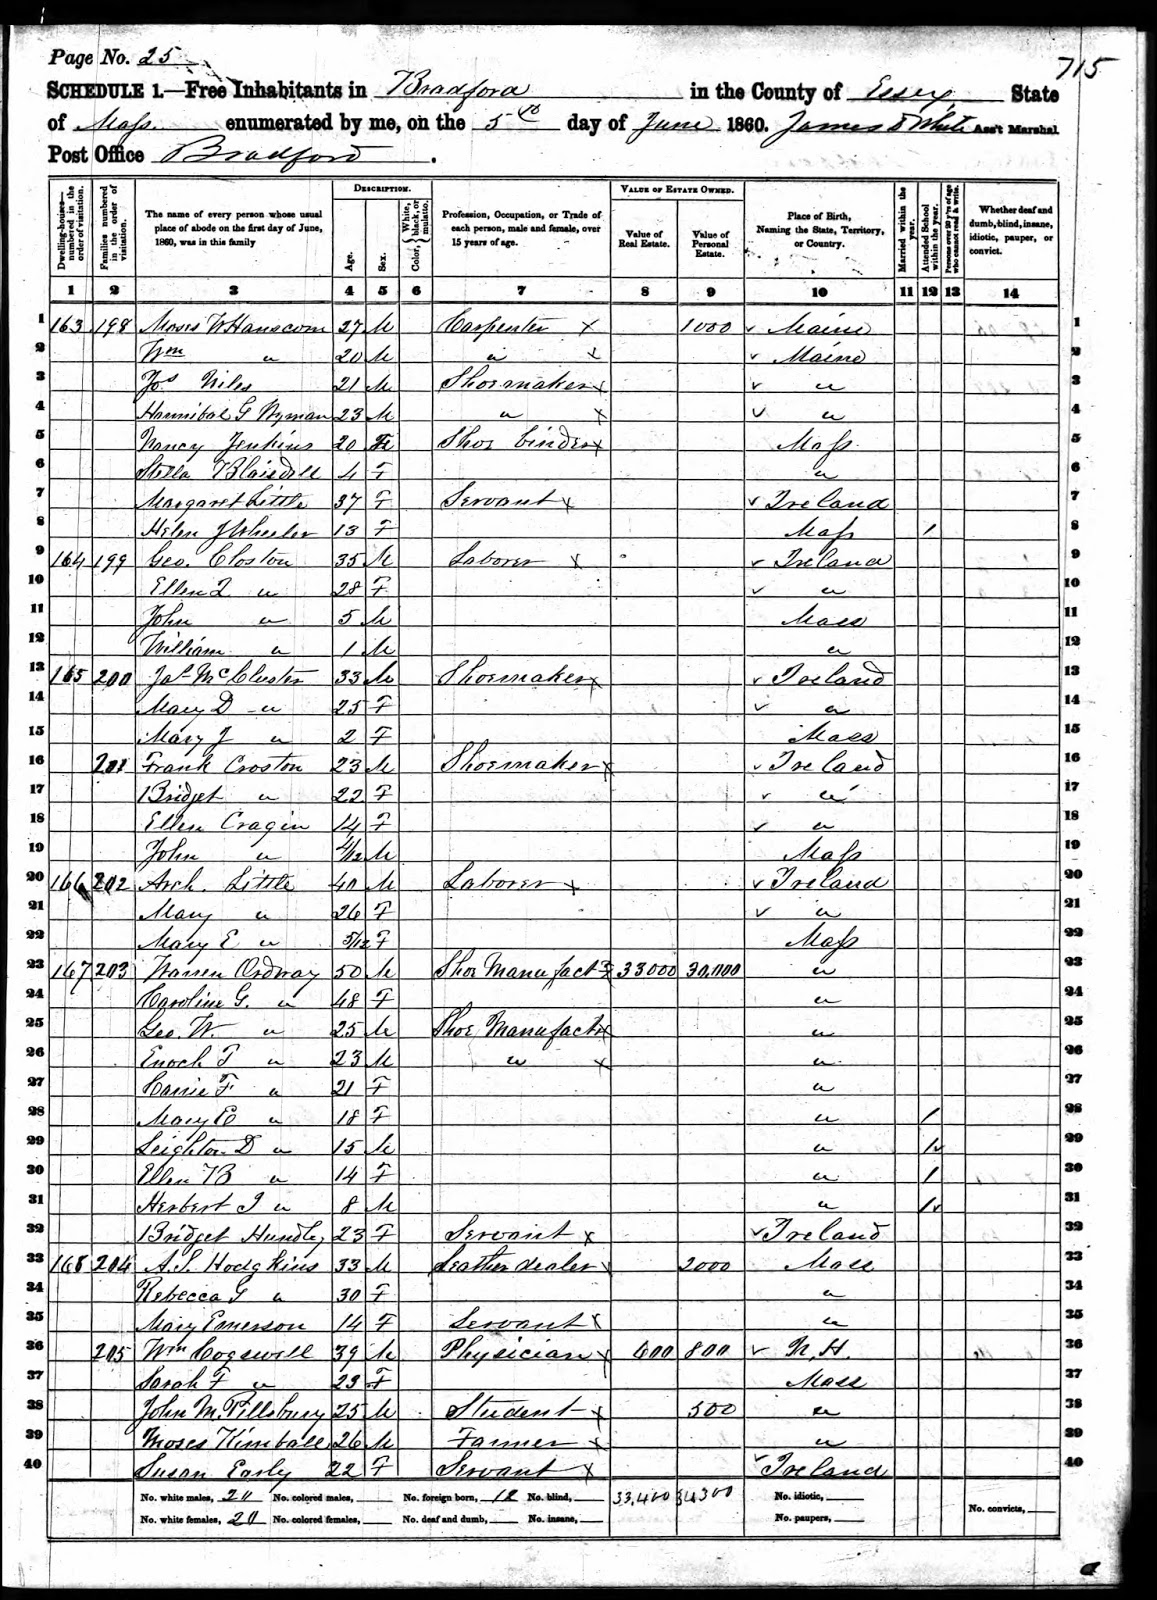 Page No. 25
715
SCHEDULE 1.—Free Inhabitants in Bradford in the County of Essex State
of Mass. enumerated by me, on the 5th day of June 1860. James D White Ass't Marshal
Post Office Bradford.
DESCRIPTION. VALUE OF ESTATE OWNED.
Dwelling-houses—numbered in the order of visitation. Families numbered in the order of visitation. The name of every person whose usual place of abode on the first day of June, 1860, was in this family Age. Sex. Color, White, black, or mulatto. Profession, Occupation, or Trade of each person, male and female, over 15 years of age. Value of Real Estate. Value of Personal Estate. Place of Birth, Naming the State, Territory, or Country. Married within the year. Attended School within the year. Persons over 20 y'rs of age who cannot read & write. Whether deaf and dumb, blind, insane, idiotic, pauper, or convict.
1 2 3 4 5 6 7 8 9 10 11 12 13 14
1 163 198 Moses W Hanscom 27 M Carpenter x 1000 ✓ Maine 1
2 Wm " 20 M " x ✓ Maine 2
3 Jos Niles 21 M Shoemaker x ✓ " 3
4 Hannibal G Wyman 23 M " x ✓ " 4
5 Nancy Jenkins 20 F Shoe binder x Mass. 5
6 Stella Blaisdell 4 F " 6
7 Margaret Little 37 F Servant x ✓ Ireland 7
8 Helen J Wheeler 13 F Mass 1 8
9 164 199 Geo. Closton 35 M Laborer x ✓ Ireland 9
10 Ellen " 28 F ✓ " 10
11 John " 5 M Mass 11
12 William " 1 M " 12
13 165 200 Jas McCluster 33 M Shoemaker x ✓ Ireland 13
14 Mary D " 25 F ✓ " 14
15 Mary J " 2 F Mass 15
16 201 Frank Croston 23 M Shoemaker x ✓ Ireland 16
17 Bridget " 22 F ✓ " 17
18 Ellen Cragin 14 F ✓ " 18
19 John " 4/12 M Mass 19
20 166 202 Arch. Little 40 M Laborer x ✓ Ireland 20
21 Mary " 26 F ✓ " 21
22 Mary E " 5/12 F Mass 22
23 167 203 Warren Ordway 50 M Shoe Manufact 33000 30,000 " 23
24 Caroline G. " 48 F " 24
25 Geo. W. " 25 M Shoe Manufact x " 25
26 Enoch T " 23 M " x " 26
27 Carrie F. " 21 F " 27
28 Mary E " 18 F " 1 28
29 Leighton D " 15 M " 1 29
30 Ellen B " 14 F " 1 30
31 Herbert I " 8 M " 1 31
32 Bridget Hundley 23 F Servant x ✓ Ireland 32
33 168 204 A. S. Hodgkins 33 M Leather dealer x 2000 Mass 33
34 Rebecca G " 30 F " 34
35 Mary Emerson 14 F Servant x " 35
36 205 Wm Cogswell 39 M Physician x 400 800 ✓ N. H. 36
37 Sarah F " 23 F Mass 37
38 John M. Pillsbury 25 M Student x 500 " 38
39 Moses Kimball 26 M Farmer x " 39
40 Susan Early 22 F Servant x ✓ Ireland 40
No. white males, 20 No. colored males, No. foreign born, 18 No. blind, 33,400 34300 No. idiotic,
No. white females, 20 No. colored females, No. deaf and dumb, No. insane, No. paupers, No. convicts,